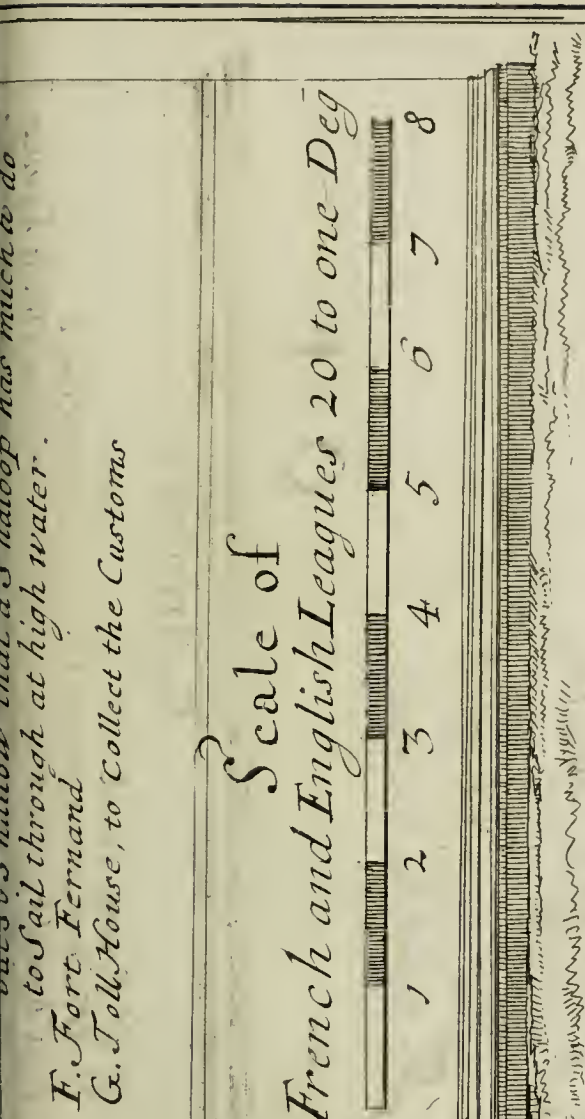 that a Shaloop has much a do
to Sail through at high water.
F. Fort Fernand
G. Toll House, to Collect the Customs
Scale of
French and English Leagues 20 to one Deg
1 2 3 4 5 6 7 8